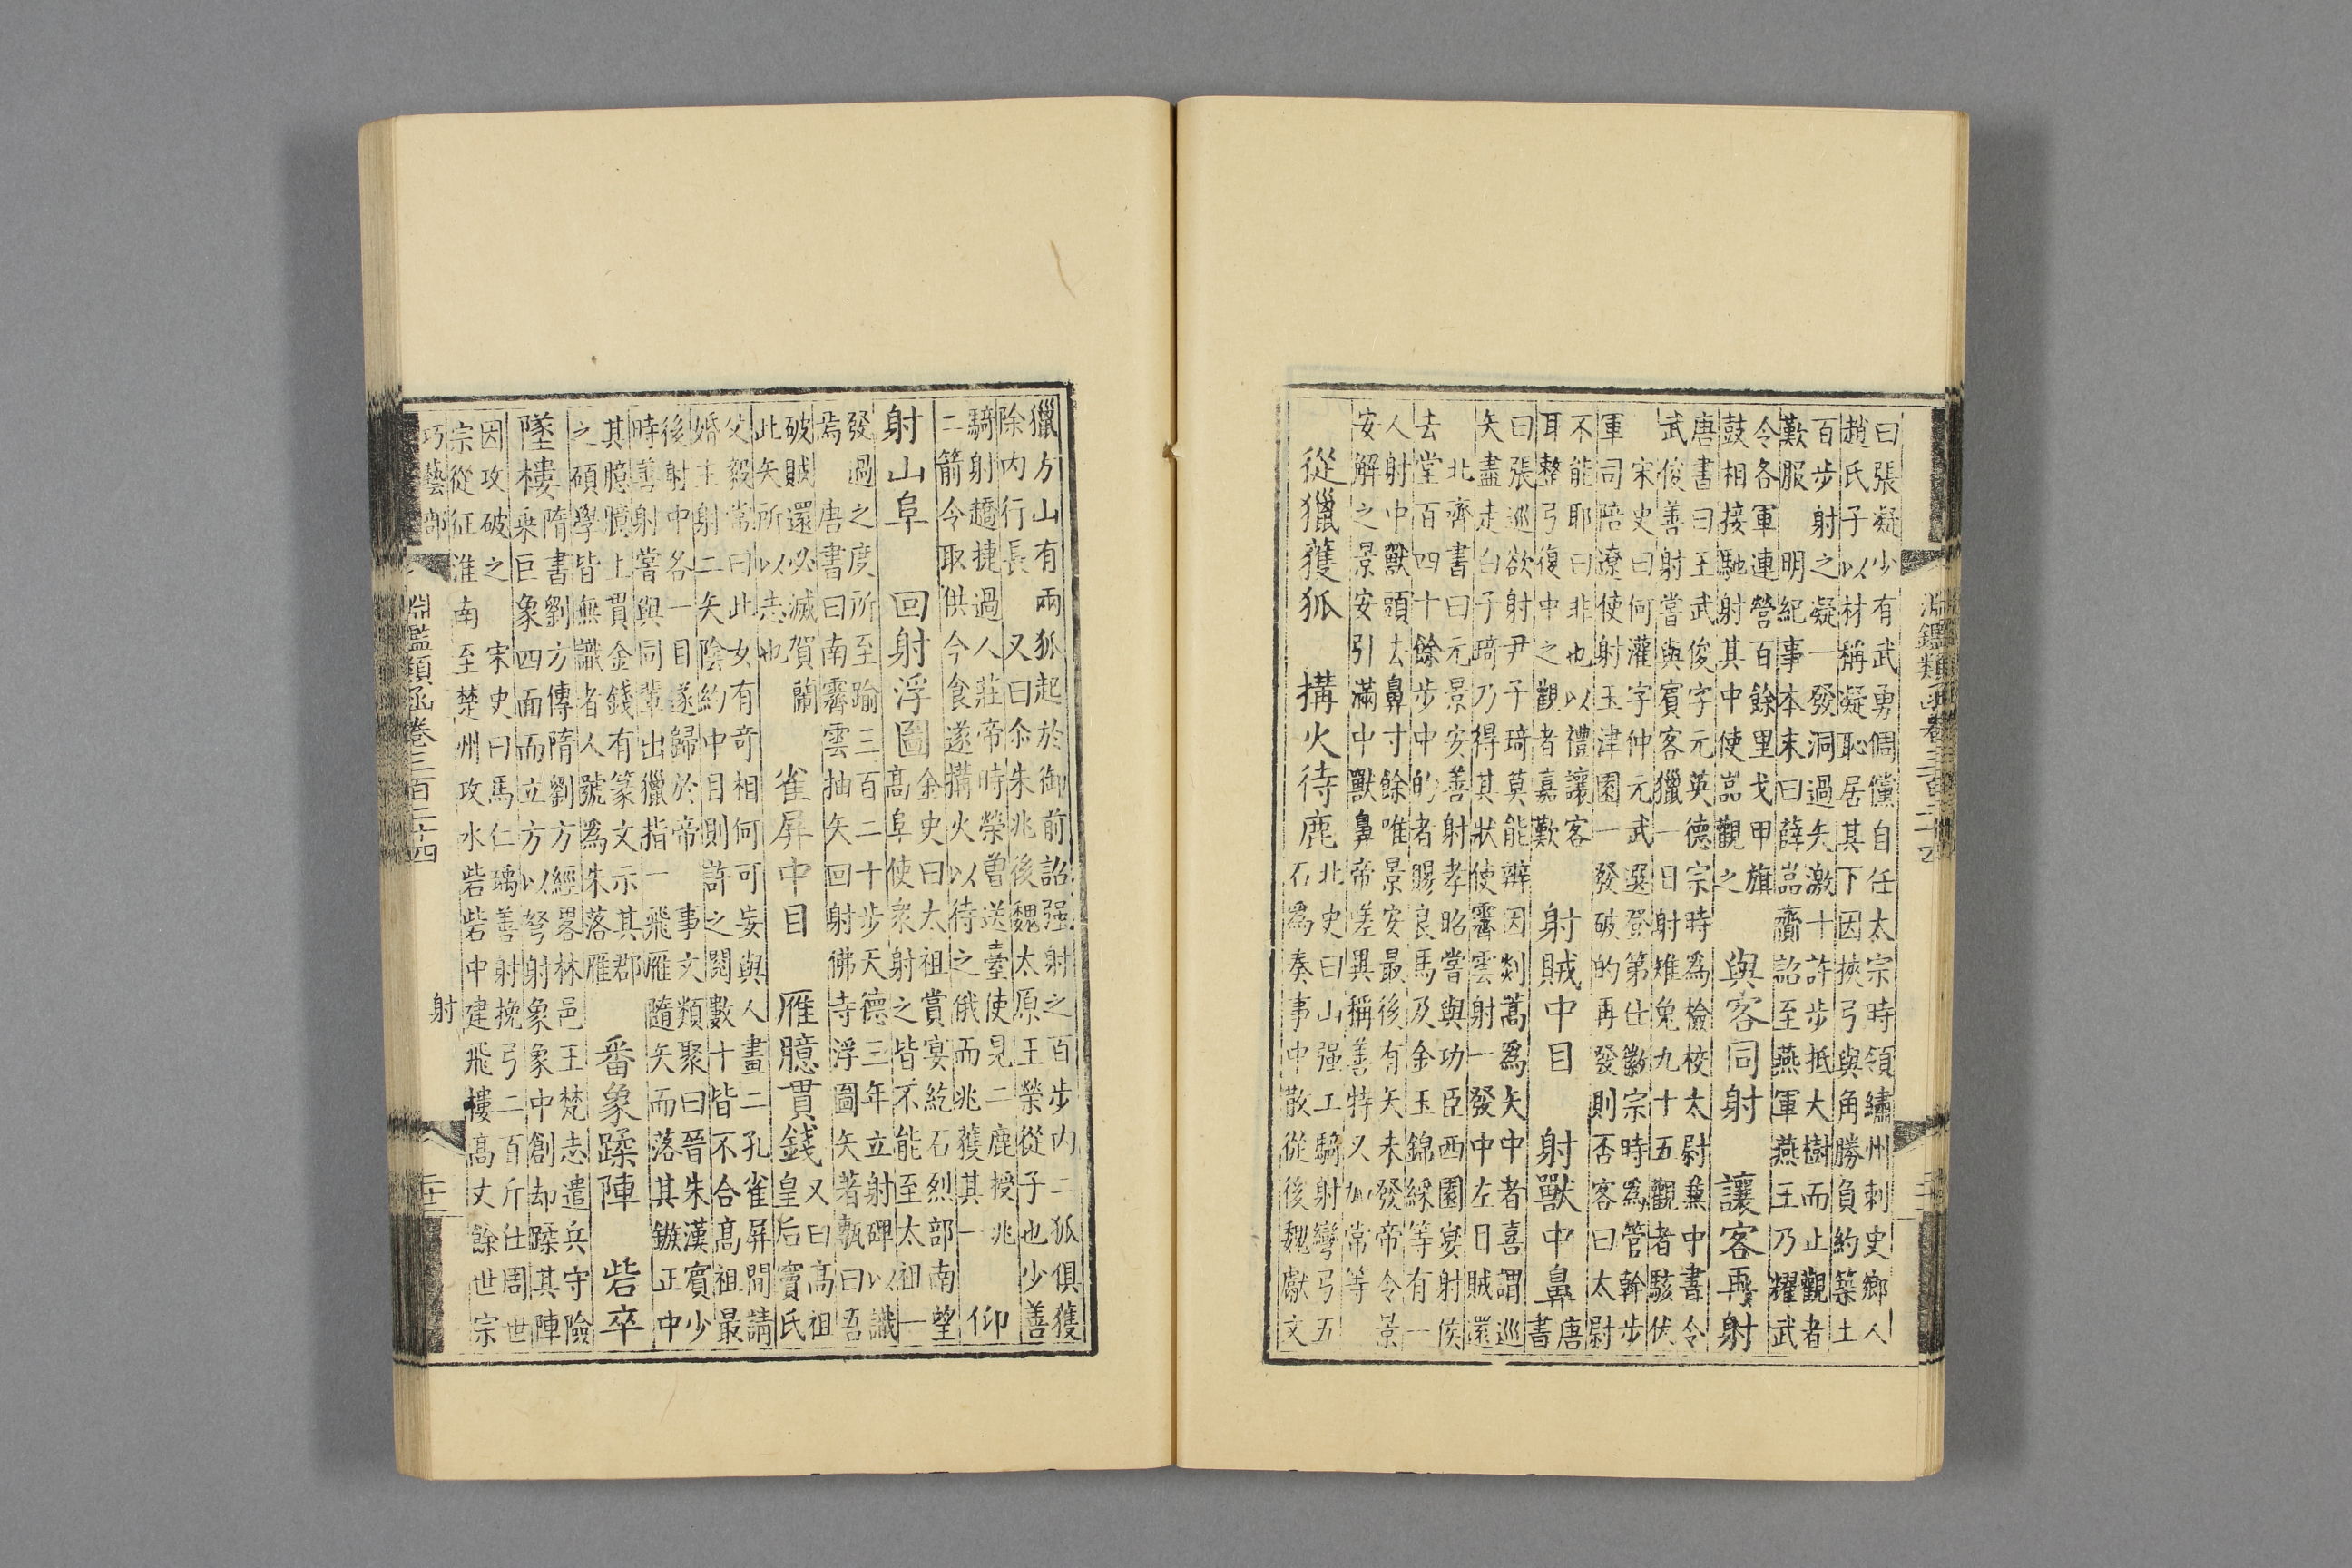 淵鑑類函卷三百二十四
曰張凝少有武勇倜儻自任太宗時領繡州刺史鄉人
趙氏子以材稱凝恥居其下因挾弓與角勝負約築土
百步射之凝一發洞過矢激十許步抵大樹而止觀者
歎服　明紀事本末曰薛嵓齎詔至燕軍燕王乃耀武
令各軍連營百餘里戈甲旗
鼓相接馳射其中使嵓觀之
與客同射　讓客再射
唐書曰王武俊字元英德宗時為檢校太尉兼中書令
武俊善射嘗與賓客獵一日射雉兔九十五觀者駭伏
宋史曰何灌字仲元武選登第仕徽宗時為管幹步
軍司陪遼使射玉津園一發破的再發則否客曰太尉
不能耶曰非也以禮讓客
耳整弓復中之觀者嘉歎
射賊中目　射獸中鼻
唐
書
曰張巡欲射尹子琦莫能辨因剡蒿為矢中者喜謂巡
矢盡走白子琦乃得其狀使霽雲射一發中左目賊還
北齊書曰元景安善射孝昭嘗與功臣西園宴射侯
去堂百四十餘步中的者賜良馬及金玉錦綵等有一
人射中獸頭去鼻寸餘唯景安最後有矢未發帝令景
安解之景安引滿中獸鼻帝嗟異稱善特又加常等
從獵獲狐　搆火待鹿
北史曰山强工騎射彎弓五
石為奏事中散從後魏獻文
獵方山有兩狐起於御前詔强射之百步內二狐俱獲
除內行長　又曰尒朱兆後魏太原王榮從子也少善
騎射趫捷過人莊帝時榮曽送臺使見二鹿授兆
二箭令取供今食遂搆火以待之俄而兆獲其一
仰
射山阜　回射浮圖
金史曰太祖嘗宴紇石烈部南望
高阜使衆射之皆不能至太祖一
發過之度所至踰三百二十步天德三年立射碑以識
焉　唐書曰南霽雲抽矢回射佛寺浮圖矢著甎曰吾
破賊還必滅賀蘭
此矢所以志也
雀屏中目　雁臆貫錢
又曰高祖
皇后竇氏
父毅常曰此女有奇相何可妄與人畫二孔雀屏間請
婚主射二矢陰約中目則許之閱數十皆不合高祖最
後射中各一目遂歸於帝　事文類聚曰晉朱漢賓少
時善射嘗與同輩出獵指一飛雁隨矢而落其鏃正中
其臆臆上貫金錢有篆文示其郡
之碩學皆無識者人號為朱落雁
番象蹂陣　砦卒
墜樓
隋書劉方傳隋劉方經畧林邑王梵志遣兵守險
乘巨象四面而立方以弩射象象中創却蹂其陣
因攻破之　宋史曰馬仁瑀善射挽弓二百斤仕周世
宗從征淮南至楚州攻水砦砦中建飛樓高丈餘世宗
巧藝部　射
淵鑑類函卷三百二十四